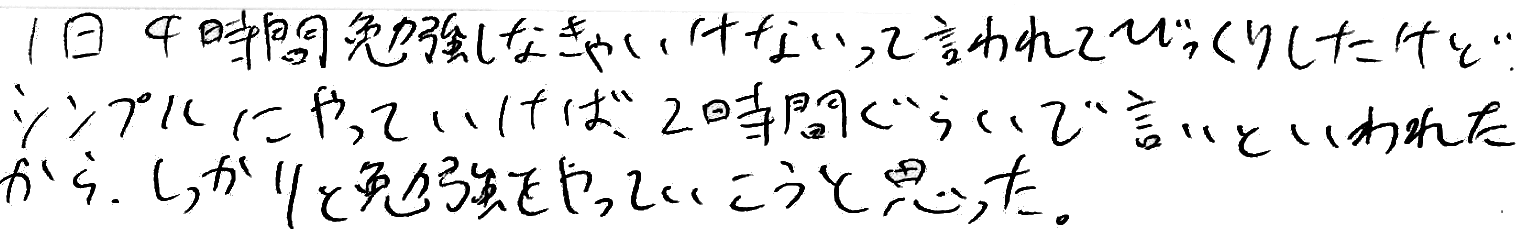 1日4時間勉強しなきゃいけないって言われてびっくりしたけど
シンプルにやっていけば、2時間ぐらいで言いといわれた
から、しっかりと勉強をやっていこうと思った。